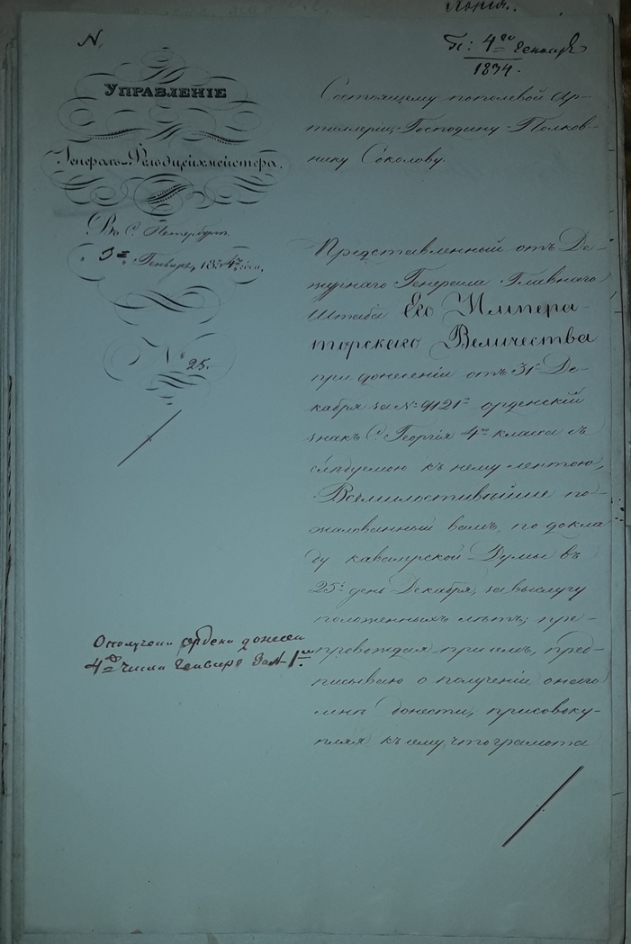 N.
П: 4го Генваря
1834.
УПРАВЛЕНІЕ
Генералъ-Фельдцейхмейстера.
Въ С. Петербургѣ
3го Генваря, 1834го года.
№ 25.
Состоящему по полевой Ар-
тиллеріи Господину Полков-
нику Соколову.
Представленный отъ Де-
журнаго Генерала Главнаго
Штаба Его Импера-
торскаго Величества
при донесеніи отъ 31го Де-
кабря за № 9121мъ орденскій
знакъ С. Георгія 4го класса съ
слѣдуемою къ нему лентою,
Всемилостивѣйше по-
жалованный вамъ, по докла-
ду кавалерской Думы въ
25й день Декабря, за выслугу
положенныхъ лѣтъ; пре-
провождая при семъ, пред-
писываю о полученіи онаго
мнѣ донести, присовоку-
пляя къ сему, что грамота
О получени ордена донесен
4го числа Генваря за № 1мъ